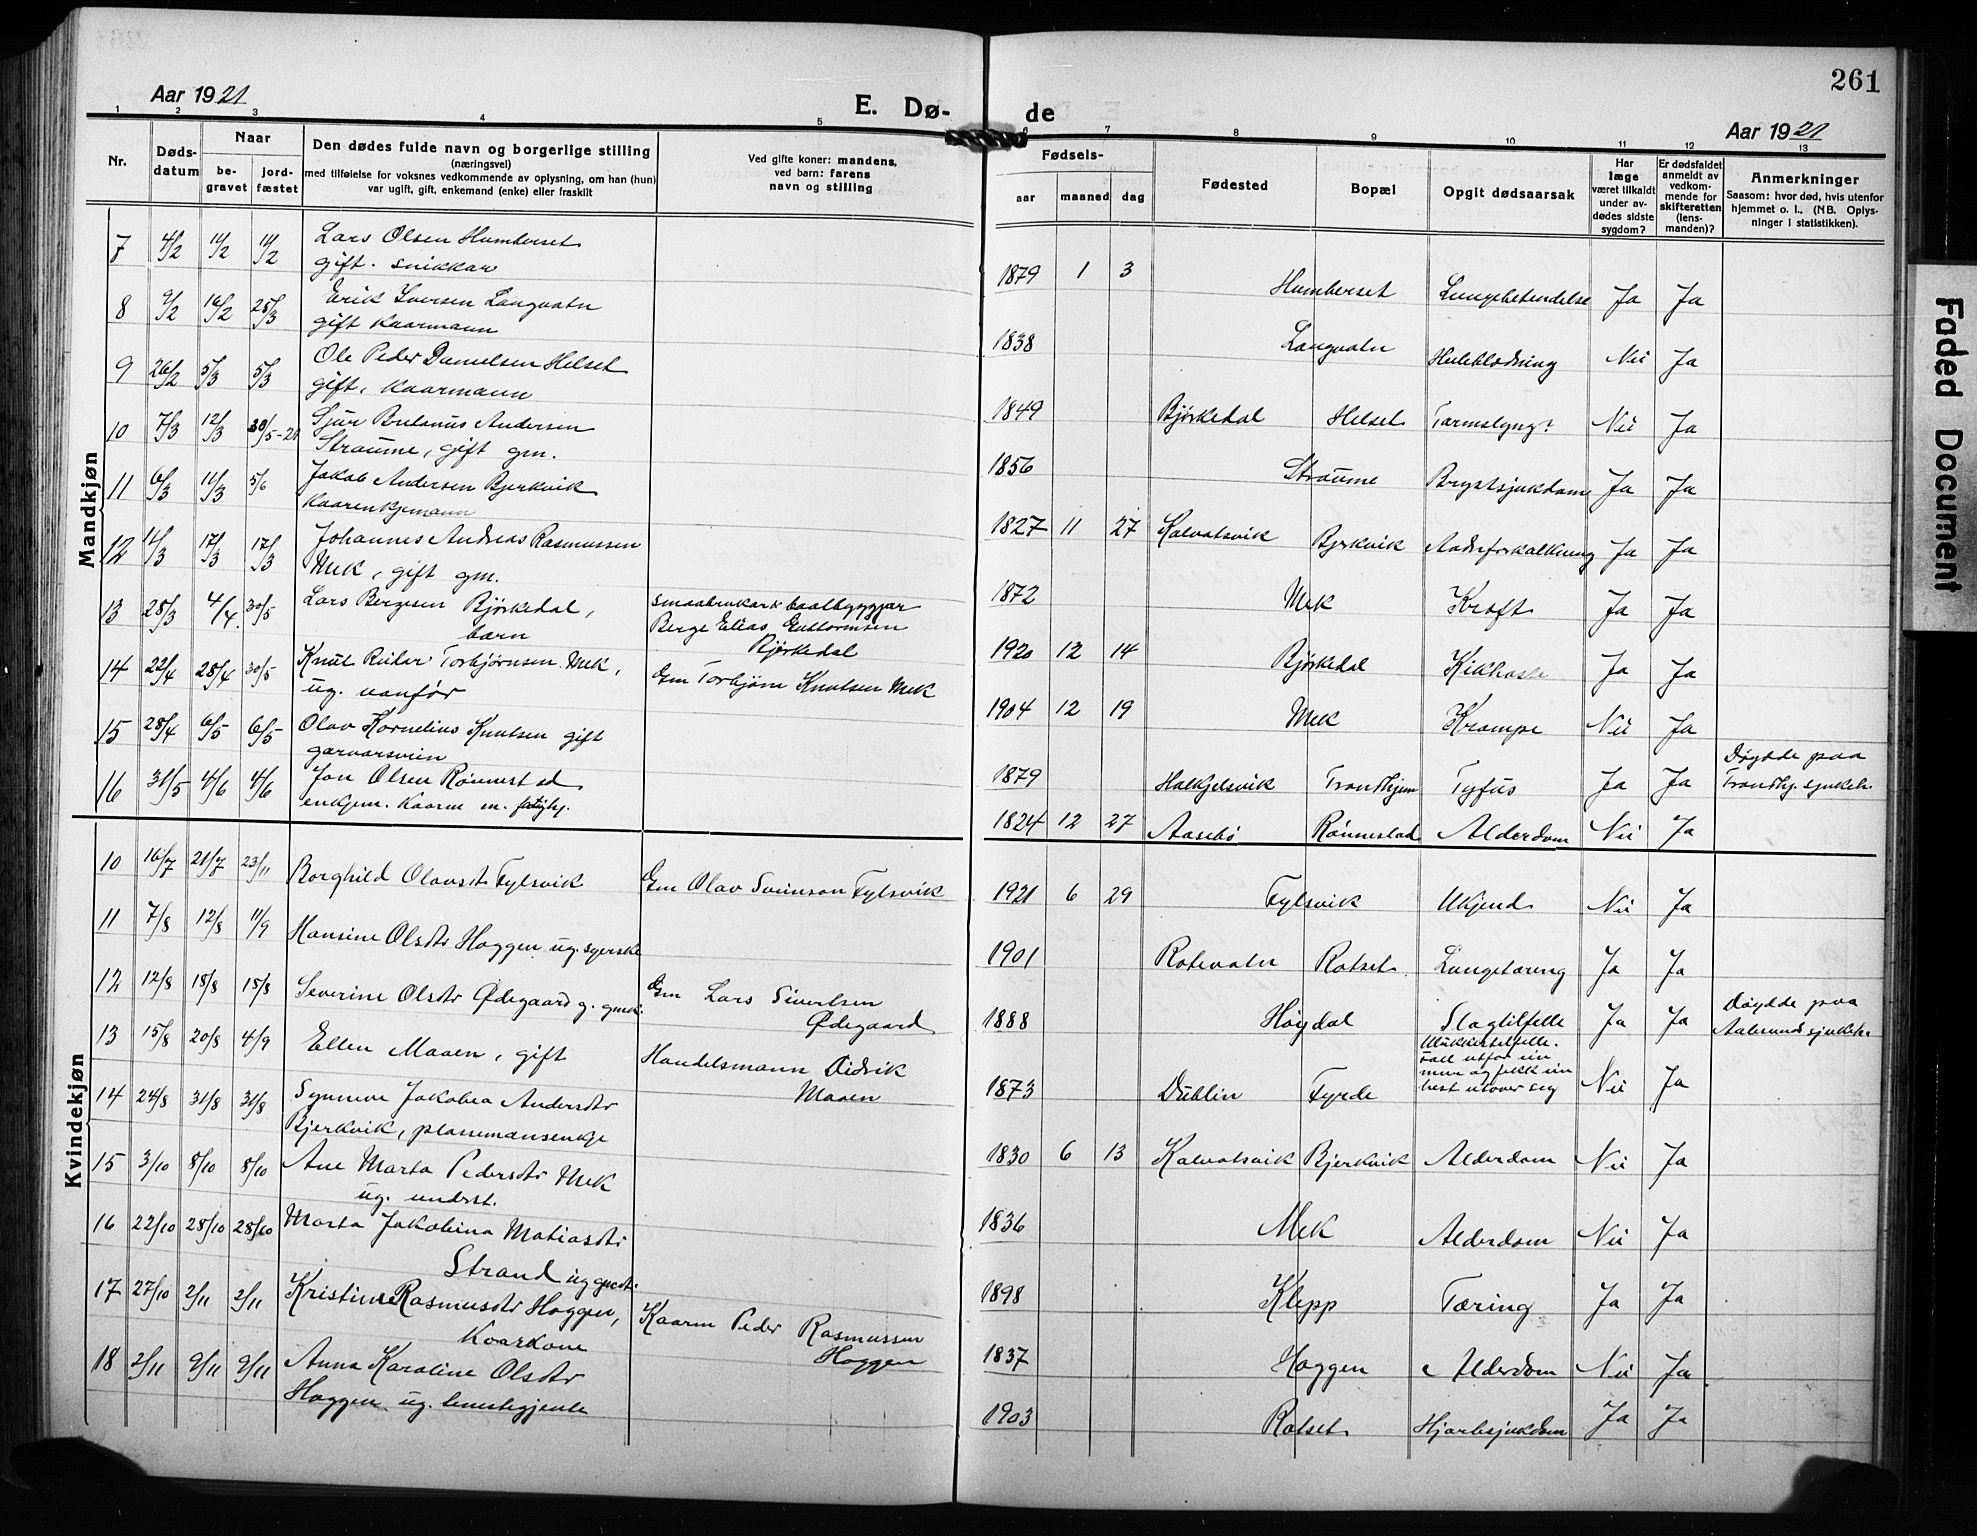 261
Aar 1921
E. Dø- de
Aar 1921
1 2 3 4 5 6 7 8 9 10 11 12 13
Nr.
Døds-
datum
Naar
be-
gravet
jord-
fæstet
Den dødes fulde navn og borgerlige stilling
(næringsvei)
med tilføielse for voksnes vedkommende av oplysning, om han (hun)
var ugift, gift, enkemand (enke) eller fraskilt
Ved gifte koner: mandens,
ved barn: farens
navn og stilling
Fødsels-
aar maaned dag
Fødested
Bopæl
Opgit dødsaarsak
Har
læge
været tilkaldt
under av-
dødes sidste
sygdom?
Er dødsfaldet
anmeldt av
vedkom-
mende for
skifteretten
(lens-
manden)?
Anmerkninger
Saasom: hvor død, hvis utenfor
hjemmet o. l., (NB. Oplys-
ninger i statistikken).
Mandkjøn
7 4/2 11/2 11/2 Lars Olsen Humberset
gift. snikkar
1879 1 3 Humberset Lungebetendelse Ja Ja
8 9/2 16/2 28/3 Erik Iversen Langvatn
gift kaarmann
1838 Langvatn Heleblødning Nei Ja
9 26/2 5/3 5/3 Ole Peder Danielsen Helset
gift, kaarmann
1849 Bjørkedal Helset Tarmslyng? Nei Ja
10 7/3 12/3 30/5-21 Sjur Andersen
Straume, gift gm.
1856 Straume Brystsjukdom Ja Ja
11 6/3 11/3 5/6 Jakob Andersen Bjerkvik
kaarenkjemann
1827 11 27 Kalvatsvik Bjerkvik Aadreforkalkning Ja Ja
12 11/3 17/3 17/3 Johannes Andreas Rasmussen
Mek, gift gm.
1872 Mek Kræft Ja Ja
13 28/3 4/4 30/5 Lars Bergesen Bjørkedal,
barn
smaabrukar & baatbyggjar
Berge Elias Guttormsen
Bjørkedal
1920 12 14 Bjørkedal Kikhoste Ja Ja
14 22/4 28/4 30/5 Knut Reidar Torbjørnsen Mek,
ug. vanfør
Gm Torbjørn Knutsen Mek
1904 12 19 Mek Krampe Nei Ja
15 28/4 6/5 6/5 Olav Kornelius Knutsen gift
garvarsvein
1879 Halkjelsvik Trondhjem Tyfus Ja Ja
Døydde paa
Trondhj. sjukeh.
16 31/5 4/6 4/6 Jon Olsen Rønnestad
enkjem. Kaarm m. fatighj.
1824 12 27 Aasebø Rønnestad Alderdom Nei Ja
Kvindekjøn
10 16/7 21/7 23/11 Borghild Olavsdtr Fylsvik
Gm Olav Sveinson Fylsvik
1921 6 29 Fylsvik Ukjend Nei Ja
11 7/8 12/8 11/9 Hansine Olsdtr Hoggen ug. syerske
1901 Rotevatn Rotset Lungetæring Ja Ja
12 12/8 18/8 18/8 Severine Olsdtr Ødegaard g. gmek.
Gm Lars Sivertsen
Ødegaard
1888 Høydal Slagtilfelle Ja Ja
Døydde paa
Aalesund sjukeh.
13 15/8 20/8 4/9 Ellen Maaen, gift
Handelsmann Didrik
Maaen
1873 Dublin Fyrde
Ulukkestilfelle.
Fall utfor ein
mur og fekk ein
hest utover seg
Nei Ja
14 24/8 31/8 31/8 Synneve Jakobea Andersdtr
Bjerkvik, plassemansenkje
1830 6 13 Kalvatsvik Bjerkvik Alderdom Nei Ja
15 3/10 8/10 8/10 Ane Marta Pedersdtr Mek
ug. underst.
1836 Mek Alderdom Nei Ja
16 22/10 28/10 28/10 Marta Jakobina Matiasdtr
Strand ug gmdt.
1898 Klepp Tæring Ja Ja
17 27/10 2/11 2/11 Kristine Rasmusdtr Hoggen,
Kaarkone
Kaarm Peder Rasmussen
Hoggen
1837 Hoggen Alderdom Nei Ja
18 2/11 9/11 9/11 Anna Karoline Olsdtr
Hoggen ug. tenestegjente
1903 Rotset Hjartesjukdom Ja Ja
Faded Document